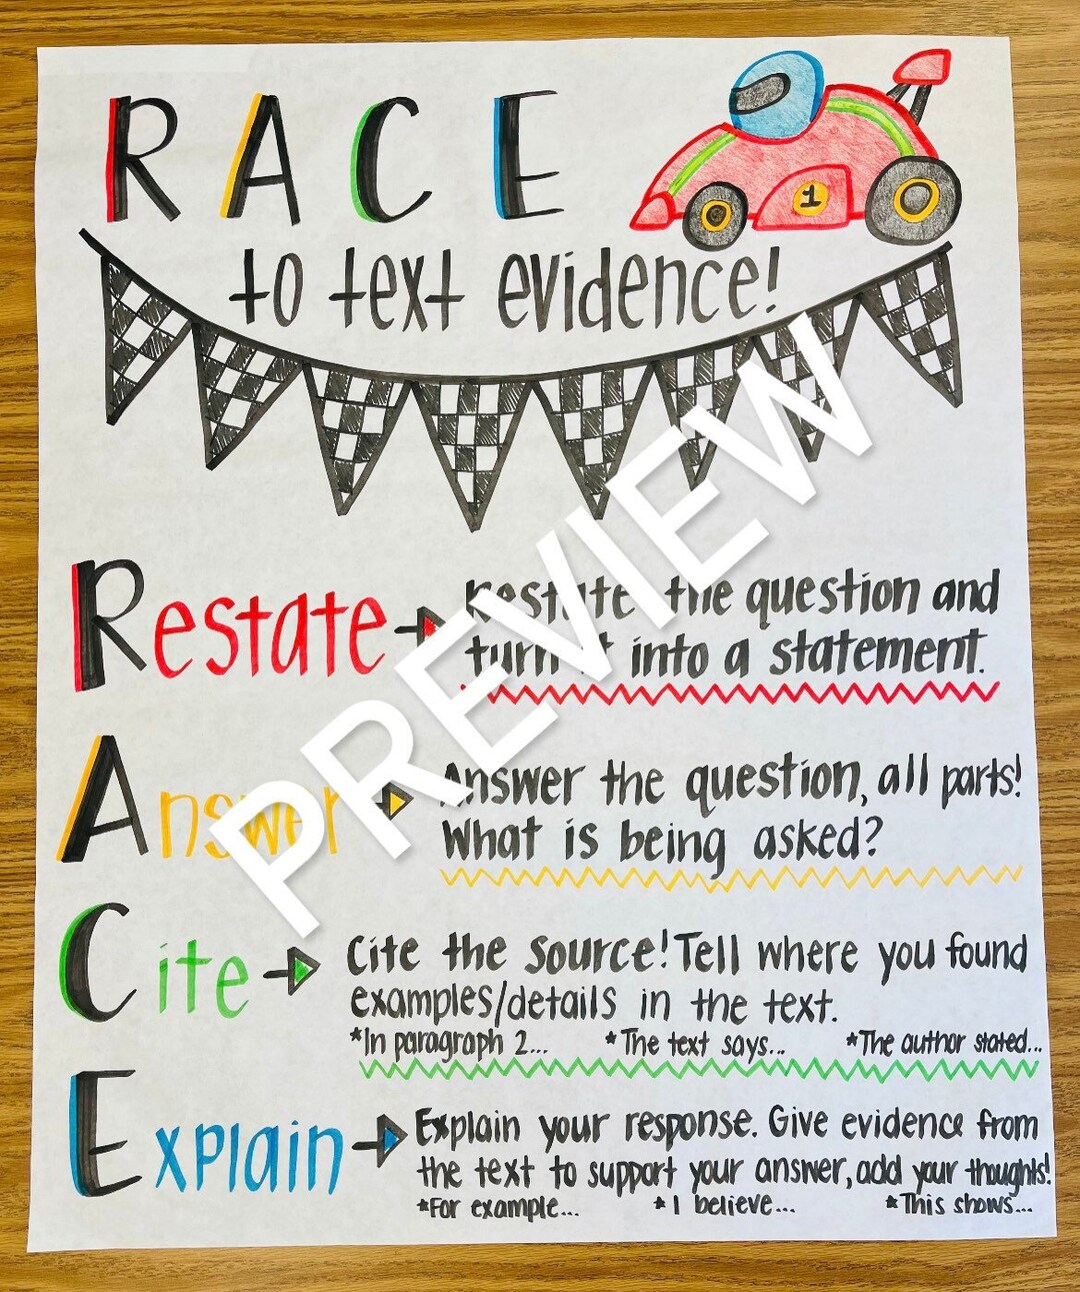 RACE
1
to text evidence!
PREVIEW
Restate
Restate the question and
turn it into a statement.
Answer
Answer the question, all parts!
What is being asked?
Cite
Cite the source! Tell where you found
examples/details in the text.
*In paragraph 2... *The text says... *The author stated...
Explain
Explain your response. Give evidence from
the text to support your answer, add your thoughts!
*For example... *I believe... *This shows...